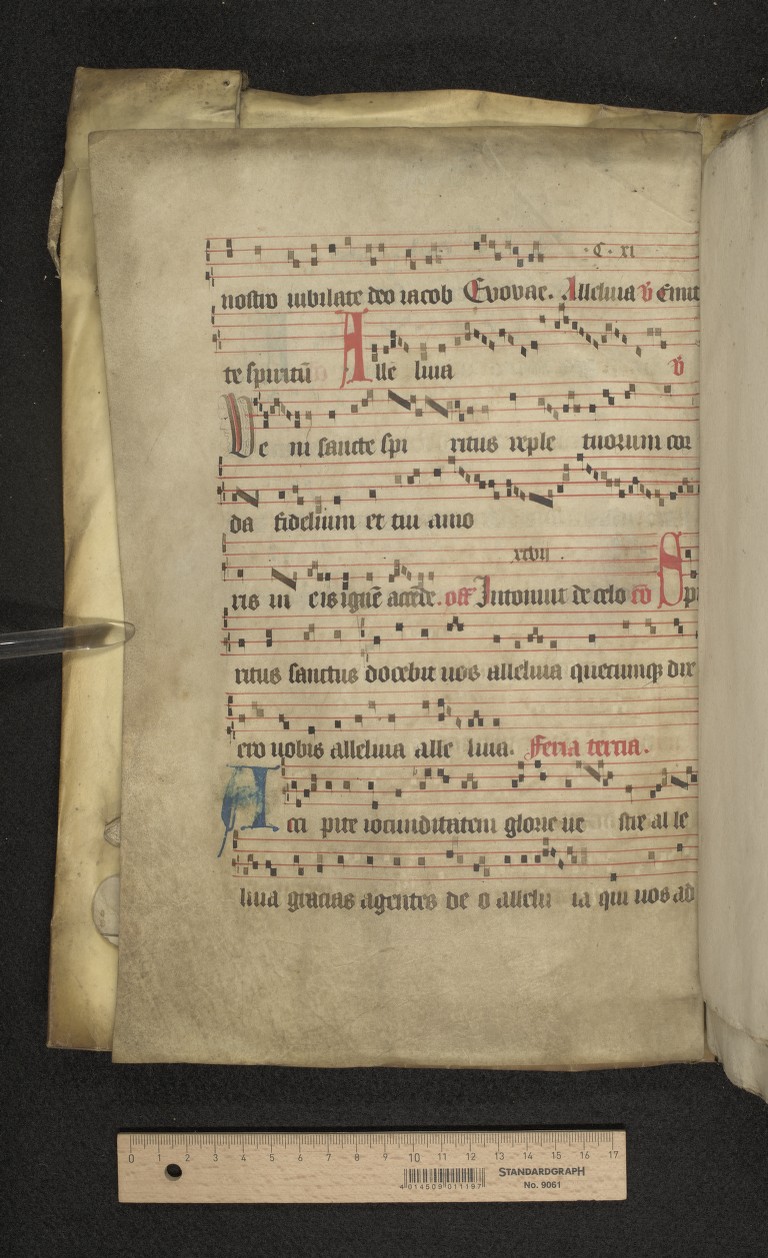 · C · xi
nostro iubilate deo iacob Evovae. Alleluia v̄ Emit
te spiritū Alle luia v̄
Ve ni sancte spi ritus reple tuorum cor
da fidelium et tui amo
xcvii .
ris in eis ignē accēde. off Intonuit de celo cō Spi
ritus sanctus docebit uos alleluia quecumqȝ dix
ero uobis alleluia alle luia. Feria tercia.
Acci pite iocunditatem glorie ue stre al le
luia gracias agentes de o allelu ia qui uos ad
0 1 2 3 4 5 6 7 8 9 10 11 12 13 14 15 16 17
4 014509 011197
STANDARDGRAPH
No. 9061